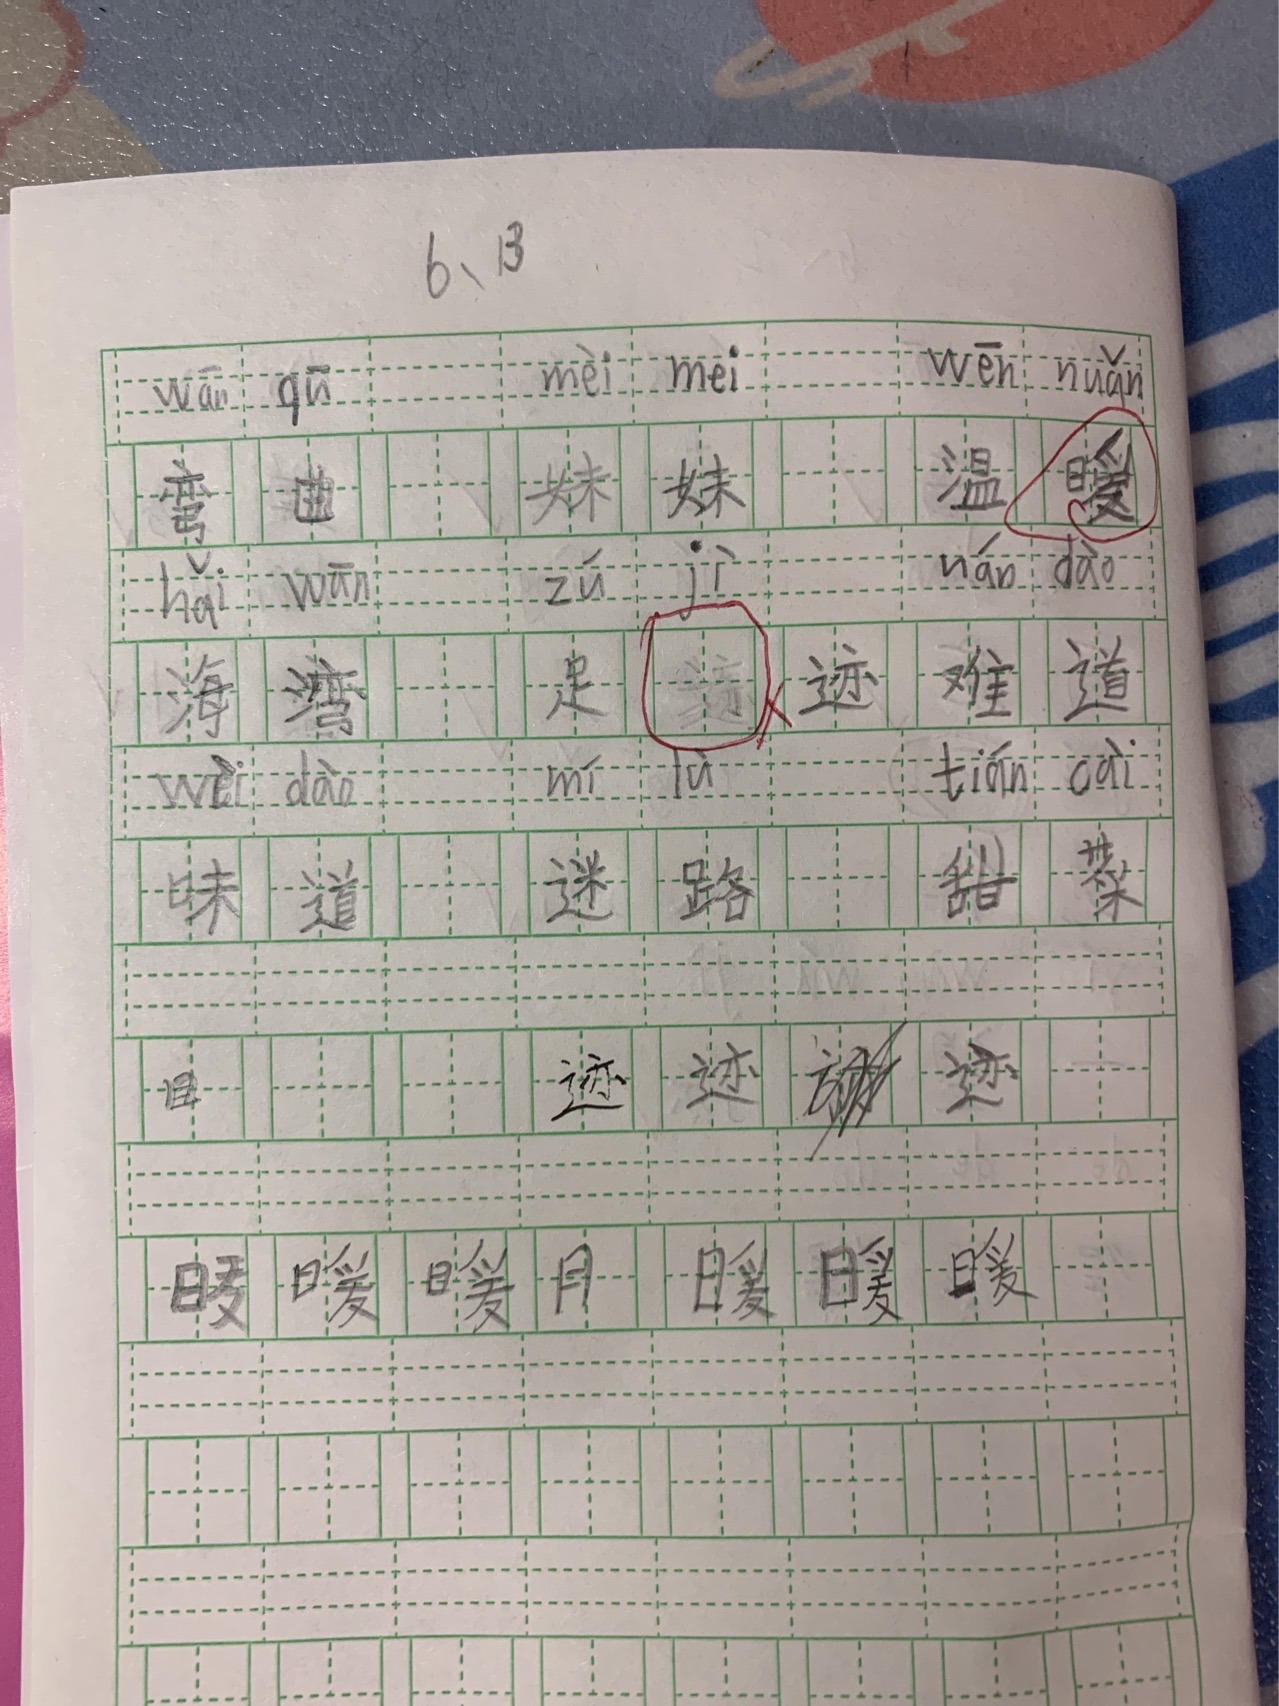 6、13
wān qū mèi mei wēn nuǎn
弯曲 妹妹 温暖
hǎi wān zú jì nán dào
海湾 足 迹 难道
wèi dào mí lù tián cài
味道 迷路 甜菜
迹 迹 迹
暖 暖 暖 月 暖 暖 暖